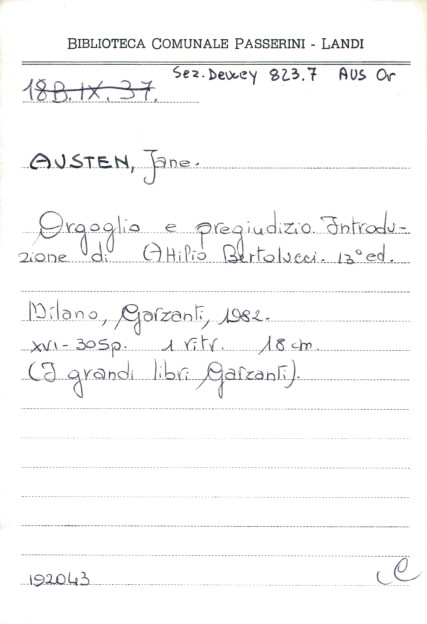 BIBLIOTECA COMUNALE PASSERINI - LANDI
Sez. Dewey 823.7 AUS Or
18B.IX.37.
AUSTEN, Jane.
Orgoglio e pregiudizio. Introdu-
zione di Attilio Bertolucci. 13° ed.
Milano, Garzanti, 1982.
XVI-305p. 1 ritr. 18 cm.
(I grandi libri Garzanti).
192043